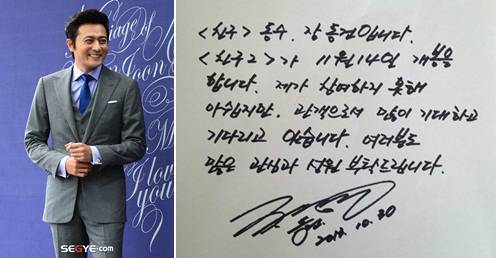 I love
you
SEGYE.com
<친구> 동수. 장동건입니다.
<친구2>가 11월 14일 개봉
합니다. 제가 참여하지 못해
아쉽지만. 관객으로서 많이 기대하고
기다리고 있습니다. 여러분도
많은 관심과 성원 부탁드립니다.
2013. 10. 30